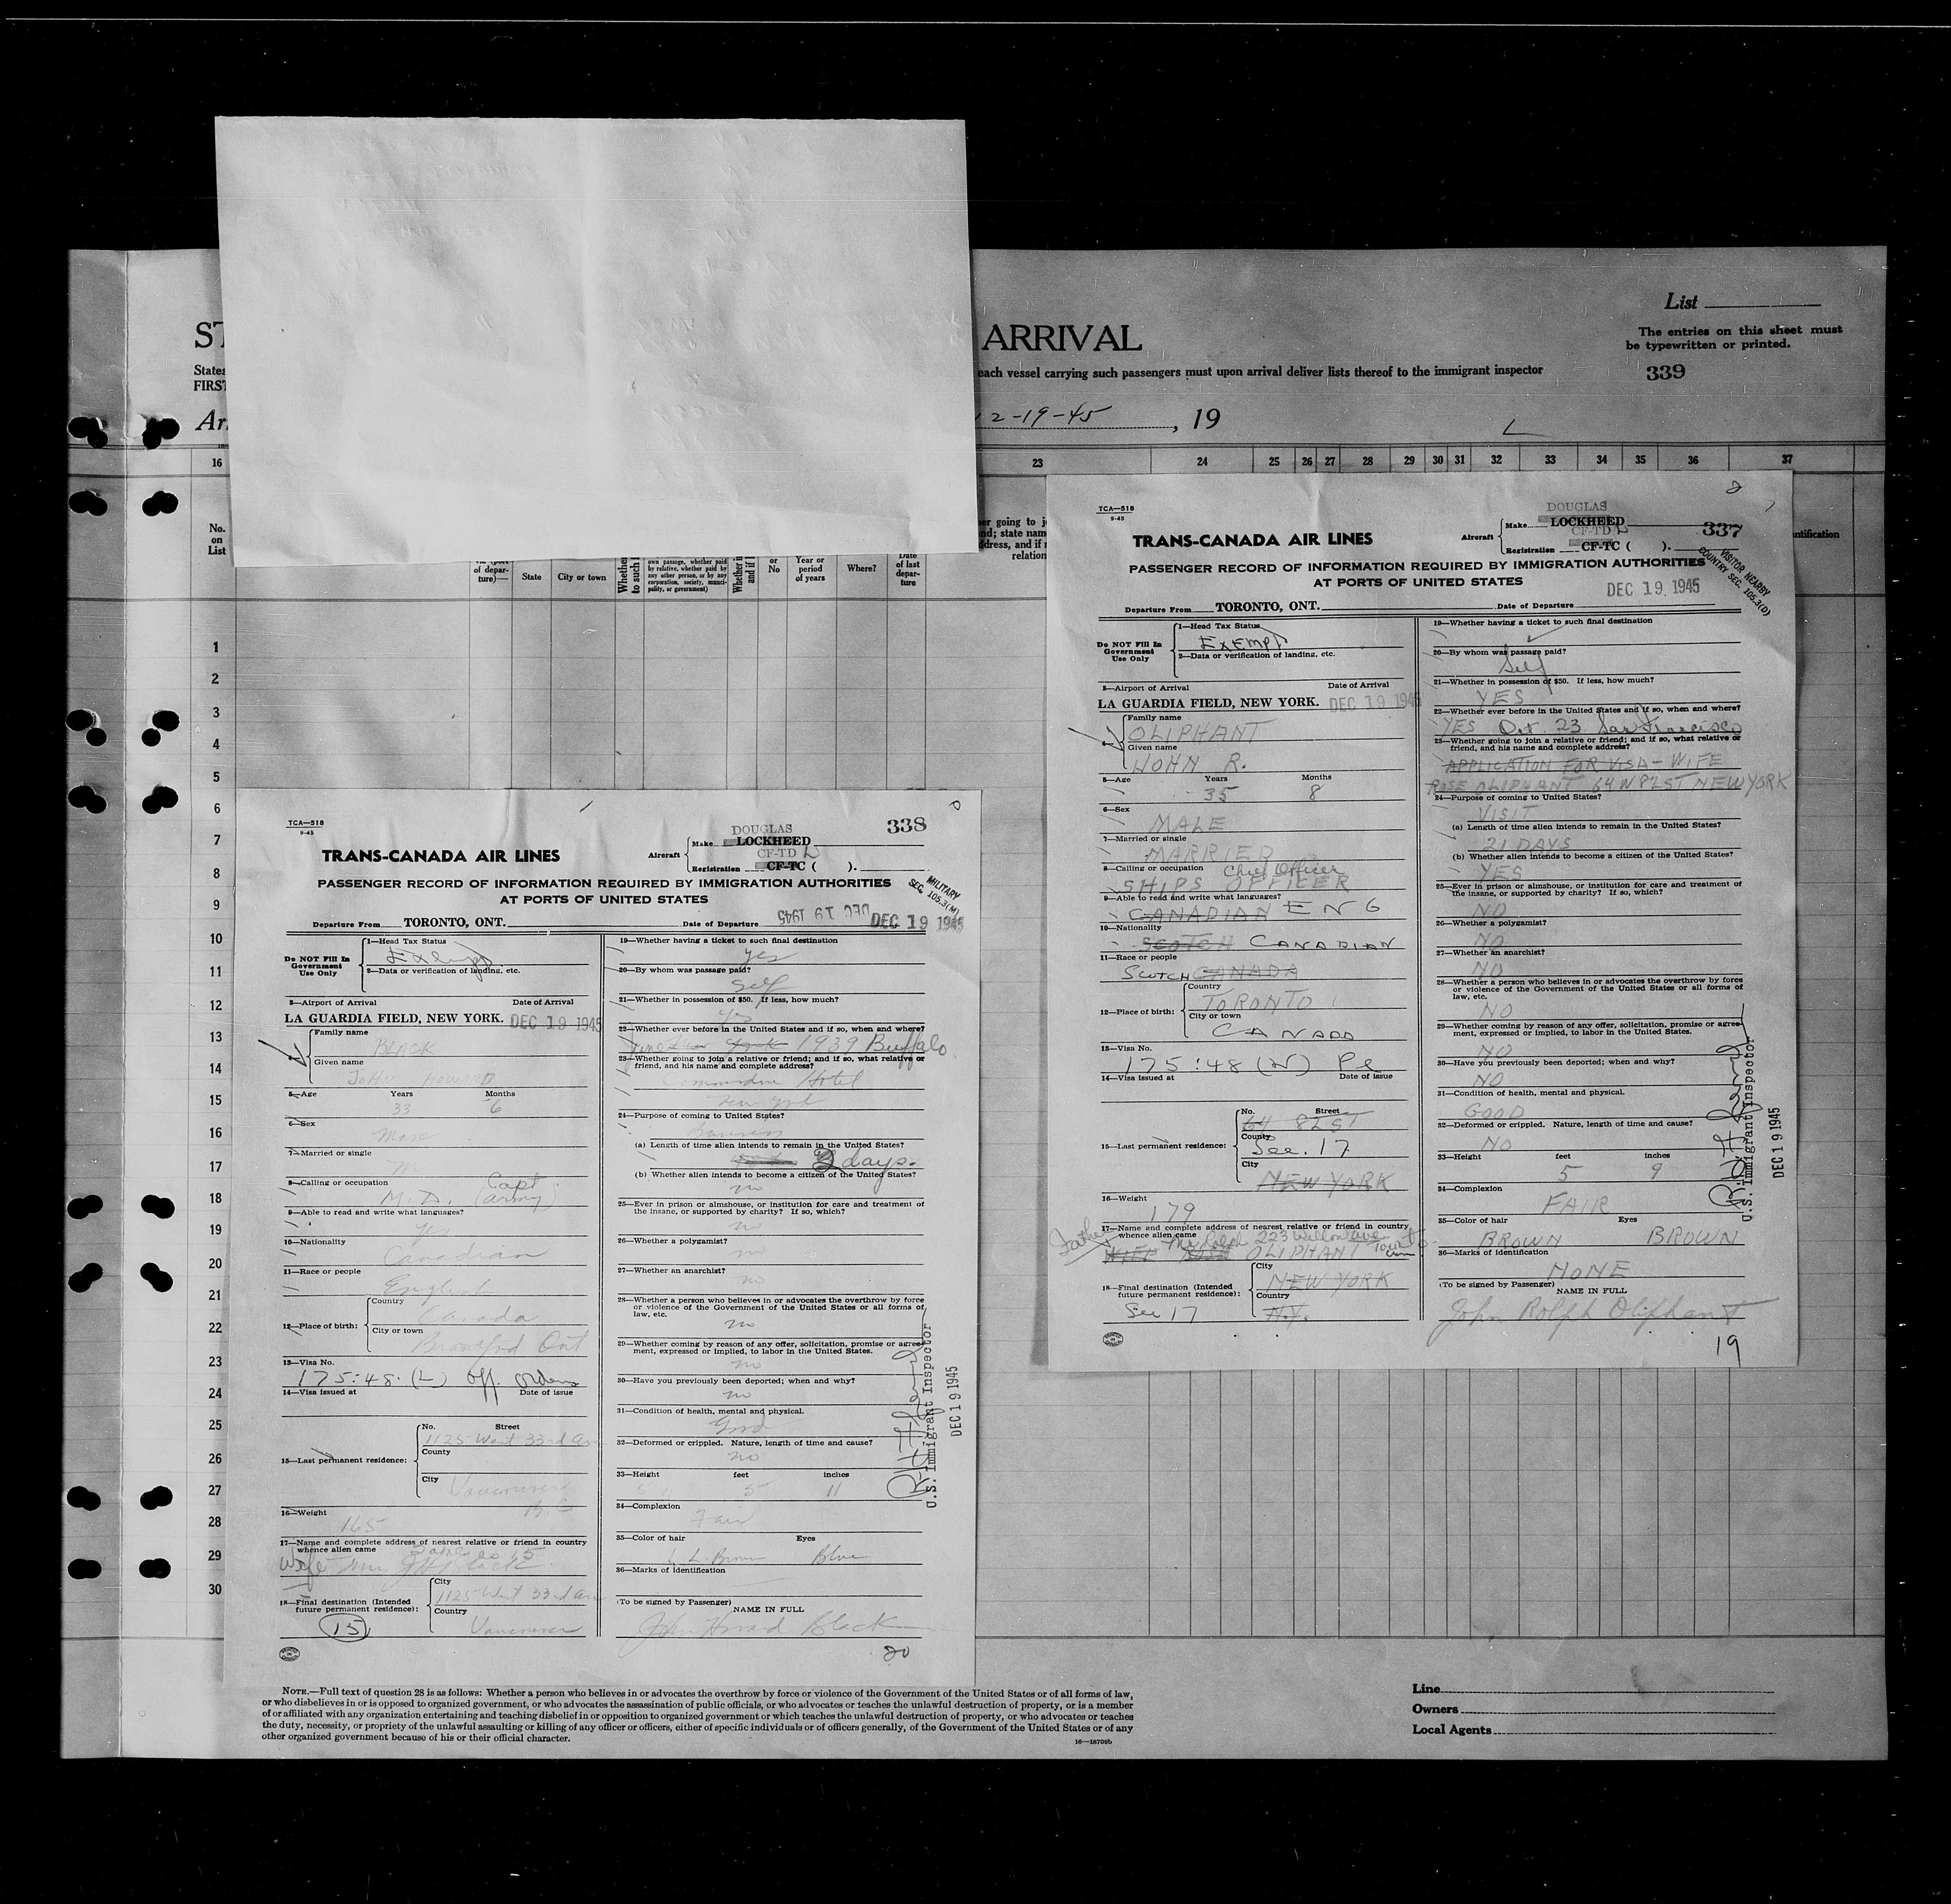 List
The entries on this sheet must
be typewritten or printed.
339
ST
ARRIVAL
States
each vessel carrying such passengers must upon arrival deliver lists thereof to the immigrant inspector
FIRST
Ar
2-19-45, 19
16 23 24 25 26 27 28 29 30 31 32 33 34 35 36 37
No.
on
List
of depar-
ture)—
State
City or town
Whether
to such
own passage, whether paid
by relative, whether paid by
any other person, or by any
corporation, society, munici-
pality, or government)
Whether in
and if
or
No
Year or
period
of years
Where?
Date
of last
depar-
ture
1
2
3
4
5
6
7
8
9
10
11
12
13
14
15
16
17
18
19
20
21
22
23
24
25
26
27
28
29
30
TCA—518
9-45
338
TRANS-CANADA AIR LINES
Aircraft
DOUGLAS
Make LOCKHEED
CF-TD L
Registration CF-TC ( ).
PASSENGER RECORD OF INFORMATION REQUIRED BY IMMIGRATION AUTHORITIES
AT PORTS OF UNITED STATES
MILITARY
SEC. 105.3(M)
Departure From TORONTO, ONT. Date of Departure DEC 19 1945 DEC 19 1945
Do NOT Fill In
Government
Use Only
1—Head Tax Status
Exempt
2—Data or verification of landing, etc.
3—Airport of Arrival Date of Arrival
LA GUARDIA FIELD, NEW YORK. DEC 19 1945
Family name
BLACK
Given name
JOHN HOWARD
5—Age Years Months
33 6
6—Sex
Male
7—Married or single
M
8—Calling or occupation
M.D. Capt (army)
9—Able to read and write what languages?
Yes
10—Nationality
Canadian
11—Race or people
English
12—Place of birth:
Country
Canada
City or town
Brantford Ont
13—Visa No.
175:48.(L) Off. orders
14—Visa issued at Date of issue
15—Last permanent residence:
No. Street
1125 West 33rd Ave
County
City
Vancouver
B.C
16—Weight
165
17—Name and complete address of nearest relative or friend in country
whence alien came
Same as 15
Wife Mrs J H Black
18—Final destination (Intended
future permanent residence):
15
City
1125 West 33rd Ave
Country
Vancouver
19—Whether having a ticket to such final destination
yes
20—By whom was passage paid?
Self
21—Whether in possession of $50. If less, how much?
yes
22—Whether ever before in the United States and if so, when and where?
1939 Buffalo
23—Whether going to join a relative or friend; and if so, what relative or
friend, and his name and complete address?
Commodore Hotel
New York
24—Purpose of coming to United States?
Business
(a) Length of time alien intends to remain in the United States?
2 days.
(b) Whether alien intends to become a citizen of the United States?
no
25—Ever in prison or almshouse, or institution for care and treatment of
the insane, or supported by charity? If so, which?
no
26—Whether a polygamist?
no
27—Whether an anarchist?
no
28—Whether a person who believes in or advocates the overthrow by force
or violence of the Government of the United States or all forms of
law, etc.
no
29—Whether coming by reason of any offer, solicitation, promise or agree-
ment, expressed or implied, to labor in the United States.
no
30—Have you previously been deported; when and why?
no
31—Condition of health, mental and physical.
Good
32—Deformed or crippled. Nature, length of time and cause?
no
33—Height feet inches
5 11
34—Complexion
Fair
35—Color of hair Eyes
L. Brown Blue
36—Marks of identification
(To be signed by Passenger)
NAME IN FULL
John Howard Black
20
U.S. Immigrant Inspector
DEC 19 1945
TCA—518
9-45
337
TRANS-CANADA AIR LINES
Aircraft
DOUGLAS
Make LOCKHEED
CF-TD L
Registration CF-TC ( ).
PASSENGER RECORD OF INFORMATION REQUIRED BY IMMIGRATION AUTHORITIES
AT PORTS OF UNITED STATES
VISITOR NEARBY
COUNTRY SEC. 105.3(D)
DEC 19 1945
Departure From TORONTO, ONT. Date of Departure
Do NOT Fill In
Government
Use Only
1—Head Tax Status
Exempt
2—Data or verification of landing, etc.
3—Airport of Arrival Date of Arrival
LA GUARDIA FIELD, NEW YORK. DEC 19 1945
Family name
OLIPHANT
Given name
JOHN R.
5—Age Years Months
35 8
6—Sex
MALE
7—Married or single
MARRIED
8—Calling or occupation Chief Officer
SHIPS OFFICER
9—Able to read and write what languages?
CANADIAN ENG
10—Nationality
SCOTCH CANADIAN
11—Race or people
SCOTCH CANADA
12—Place of birth:
Country
TORONTO
City or town
CANADA
13—Visa No.
175:48(N) Pl
14—Visa issued at Date of issue
15—Last permanent residence:
No. Street
64 82 ST
County
See. 17
City
NEW YORK
16—Weight
179
17—Name and complete address of nearest relative or friend in country
whence alien came
Father Mr Rolph 223 Willow Ave Toronto
WIFE ROSE OLIPHANT
18—Final destination (Intended
future permanent residence):
See 17
City
NEW YORK
Country
N.Y.
19—Whether having a ticket to such final destination
20—By whom was passage paid?
Self
21—Whether in possession of $50. If less, how much?
YES
22—Whether ever before in the United States and if so, when and where?
YES Oct. 23 San Francisco
23—Whether going to join a relative or friend; and if so, what relative or
friend, and his name and complete address?
APPLICATION FOR VISA - WIFE
ROSE OLIPHANT 64 W 82 ST NEW YORK
24—Purpose of coming to United States?
VISIT
(a) Length of time alien intends to remain in the United States?
21 DAYS
(b) Whether alien intends to become a citizen of the United States?
YES
25—Ever in prison or almshouse, or institution for care and treatment of
the insane, or supported by charity? If so, which?
NO
26—Whether a polygamist?
NO
27—Whether an anarchist?
NO
28—Whether a person who believes in or advocates the overthrow by force
or violence of the Government of the United States or all forms of
law, etc.
NO
29—Whether coming by reason of any offer, solicitation, promise or agree-
ment, expressed or implied, to labor in the United States.
NO
30—Have you previously been deported; when and why?
NO
31—Condition of health, mental and physical.
GOOD
32—Deformed or crippled. Nature, length of time and cause?
NO
33—Height feet inches
5 9
34—Complexion
FAIR
35—Color of hair Eyes
BROWN BROWN
36—Marks of identification
NONE
(To be signed by Passenger)
NAME IN FULL
John Rolph Oliphant
19
U.S. Immigrant Inspector
DEC 19 1945
NOTE.—Full text of question 28 is as follows: Whether a person who believes in or advocates the overthrow by force or violence of the Government of the United States or of all forms of law,
or who disbelieves in or is opposed to organized government, or who advocates the assassination of public officials, or who advocates or teaches the unlawful destruction of property, or is a member
of or affiliated with any organization entertaining and teaching disbelief in or opposition to organized government or which teaches the unlawful destruction of property, or who advocates or teaches
the duty, necessity, or propriety of the unlawful assaulting or killing of any officer or officers, either of specific individuals or of officers generally, of the Government of the United States or of any
other organized government because of his or their official character.
16—18709b
Line
Owners
Local Agents